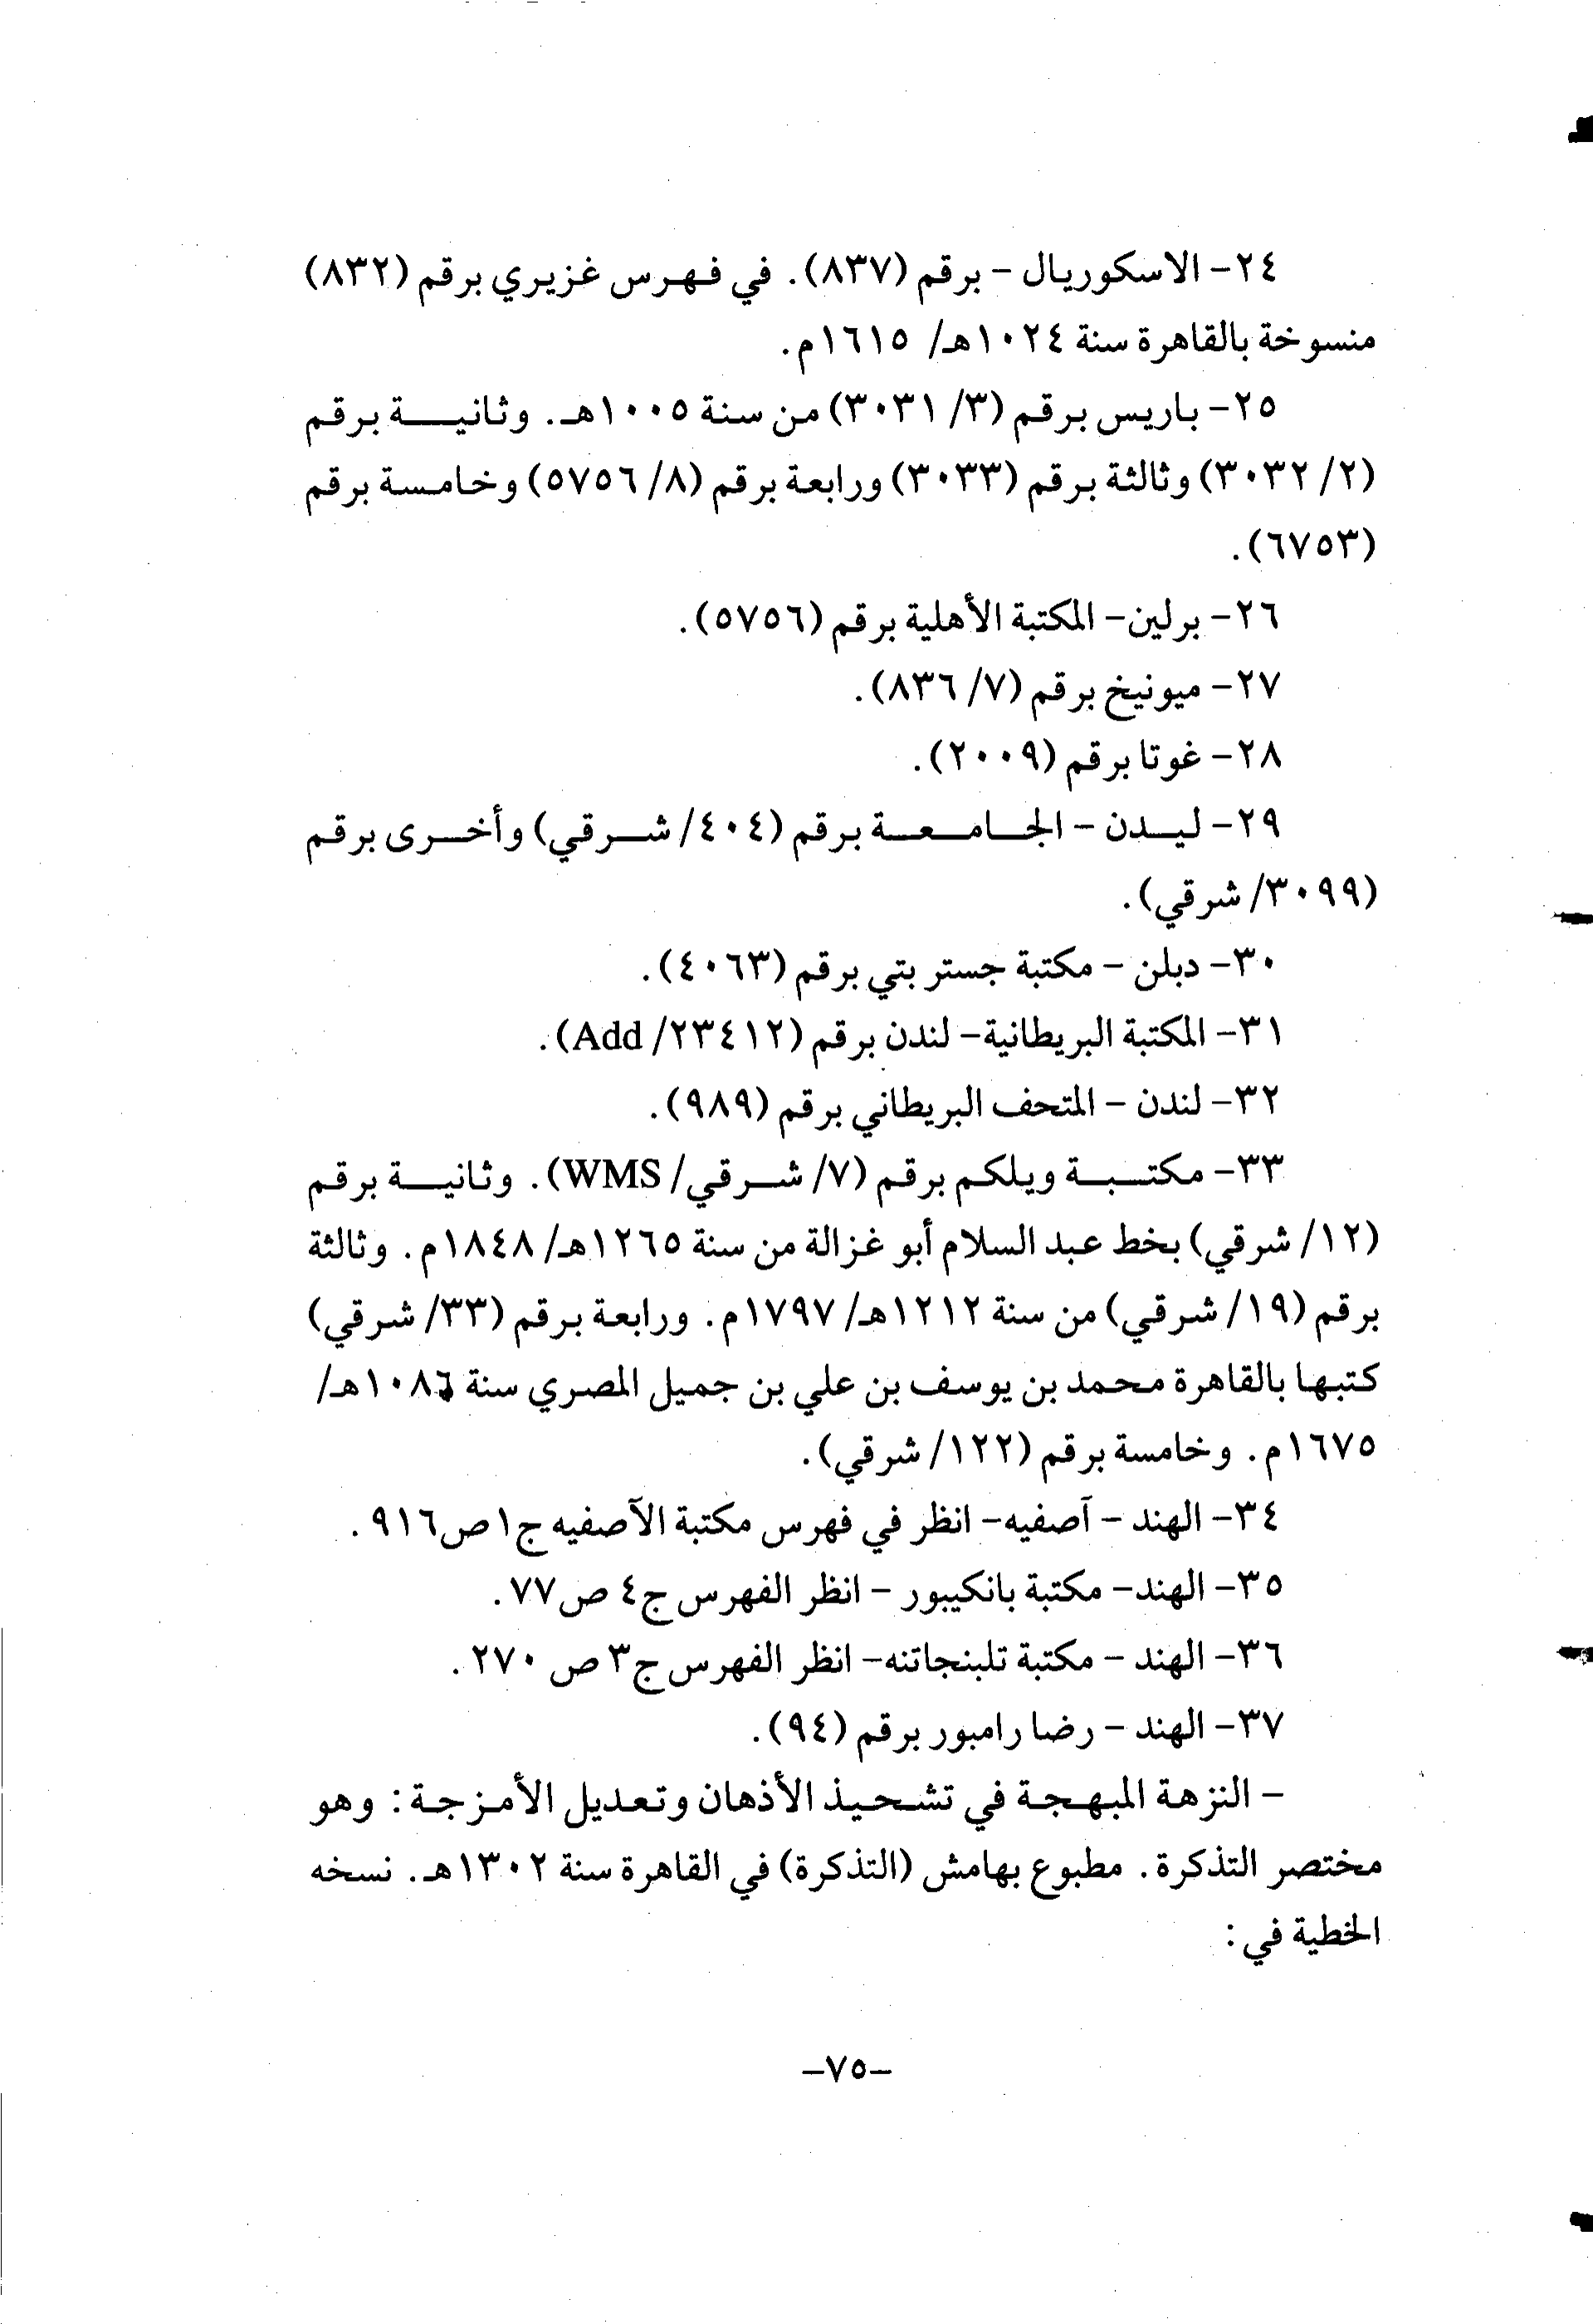 ٢٤- الاسكوريال - برقم (٨٣٧). في فهرس غزيري برقم (٨٣٢)
منسوخة بالقاهرة سنة ١٠٢٤هـ/ ١٦١٥م.
٢٥- باريس برقم (٣/ ٣٠٣١) من سنة ١٠٠٥هـ. وثانية برقم
(٢/ ٣٠٣٢) وثالثة برقم (٣٠٣٣) ورابعة برقم (٨/ ٥٧٥٦) وخامسة برقم
(٦٧٥٣).
٢٦- برلين- المكتبة الأهلية برقم (٥٧٥٦).
٢٧- ميونيخ برقم (٧/ ٨٣٦).
٢٨- غوتا برقم (٢٠٠٩).
٢٩- ليدن - الجامعة برقم (٤٠٤/ شرقي) وأخرى برقم
(٣٠٩٩/ شرقي).
٣٠- دبلن - مكتبة جستر بتي برقم (٤٠٦٣).
٣١- المكتبة البريطانية- لندن برقم (٢٣٤١٢/ Add).
٣٢- لندن - المتحف البريطاني برقم (٩٨٩).
٣٣- مكتبة ويلكم برقم (٧/ شرقي/ WMS). وثانية برقم
(١٢/ شرقي) بخط عبد السلام أبو غزالة من سنة ١٢٦٥هـ/ ١٨٤٨م. وثالثة
برقم (١٩/ شرقي) من سنة ١٢١٢هـ/ ١٧٩٧م. ورابعة برقم (٣٣/ شرقي)
كتبها بالقاهرة محمد بن يوسف بن علي بن جميل المصري سنة ١٠٨٦هـ/
١٦٧٥م. وخامسة برقم (١٢٢/ شرقي).
٣٤- الهند - آصفيه- انظر في فهرس مكتبة الآصفيه ج١ ص٩١٦.
٣٥- الهند- مكتبة بانكيبور - انظر الفهرس ج٤ ص٧٧.
٣٦- الهند - مكتبة تلبنجاتنه- انظر الفهرس ج٣ ص ٢٧٠.
٣٧- الهند - رضا رامبور برقم (٩٤).
- النزهة المبهجة في تشحيذ الأذهان وتعديل الأمزجة: وهو
مختصر التذكرة. مطبوع بهامش (التذكرة) في القاهرة سنة ١٣٠٢هـ. نسخه
الخطية في:
-٧٥-